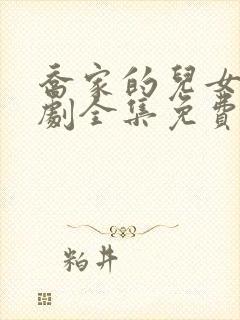 喬家的兒女
劇全集免費
粕井